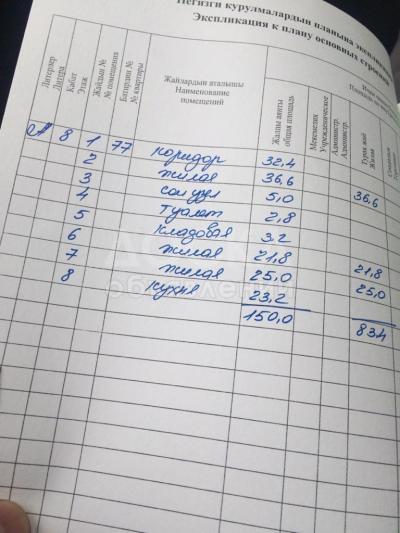 Негизги курулмалардын планына экспликация
Экспликация к плану основных строений
Литерлер Литера
Кабат Этаж
Жайдын № № помещения
Батирдин № № квартиры
Жайлардын аталышы Наименование помещений
Жалпы аянты общая площадь
Мекемелик Учрежденческое
Администр. Администр.
Турак жай Жилое
А 8 1 77 коридор 32,4
2 жилая 36,6 36,6
3 сан узел 5,0
4 туалет 2,8
5 кладовая 3,2
6 жилая 21,8 21,8
7 жилая 25,0 25,0
8 кухня 23,2
150,0 83,4